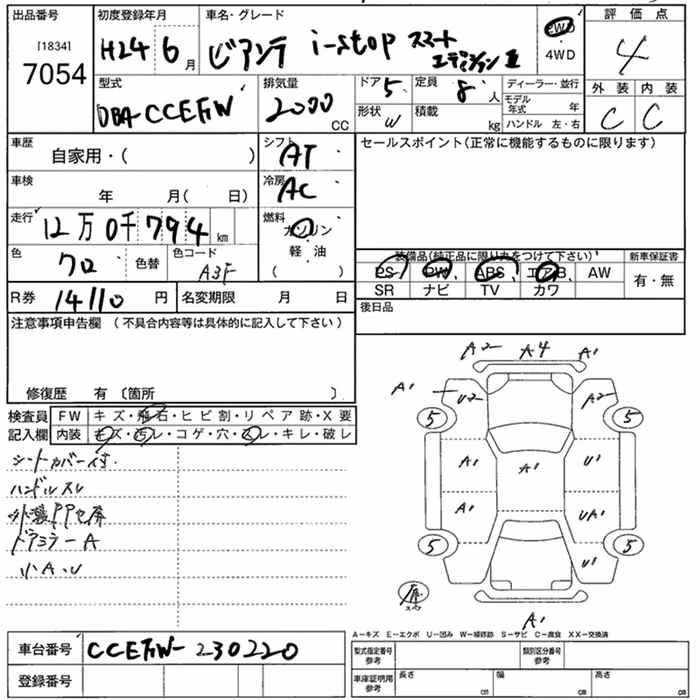 出品番号 初度登録年月 車名・グレード 2WD 評価点
[1834]
7054 H24 6月 ビアンテ i-stop スマートエディションⅡ 4WD 4
型式 排気量 ドア 5 定員 8人 ディーラー・並行 外装 内装
DBA-CCEFW 2000 CC 形状 W 積載 kg モデル年式 年 C C
ハンドル 左・右
車歴 シフト セールスポイント(正常に機能するものに限ります)
自家用・( ) AT
車検 冷房
年 月( 日) AC
走行 燃料
12万0千794 km ガソリン
色 色替 色コード 軽油 装備品(純正品に限り力をつけて下さい) 新車保証書
クロ A3F ( ) PS PW ABS エアB AW 有・無
SR ナビ TV カワ
R券 14110 円 名変期限 月 日 後日品
注意事項申告欄 (不具合内容等は具体的に記入して下さい)
修復歴 有 〔箇所 〕
A2 A4 A1
A1 U2 A2
検査員 FW キズ・飛石・ヒビ割・リペア跡・X要 5 5
記入欄 内装 キズ・汚レ・コゲ・穴・スレ・キレ・破レ
シートカバー付 A1 A1 U1
ハンドルスレ
外装PP セ済 A1 UA1
ドアミラーA 5 5
小A・U U1
A1
A-キズ E-エクボ U-凹み W-補修跡 S-サビ C-腐食 XX-交換済
車台番号 CCEFW-230220 型式指定番号 参考 類別区分番号 参考
登録番号 車庫証明用 参考 長さ cm 幅 cm 高さ cm